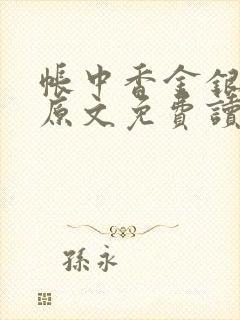 帳中香金銀
原文免費讀
孫永